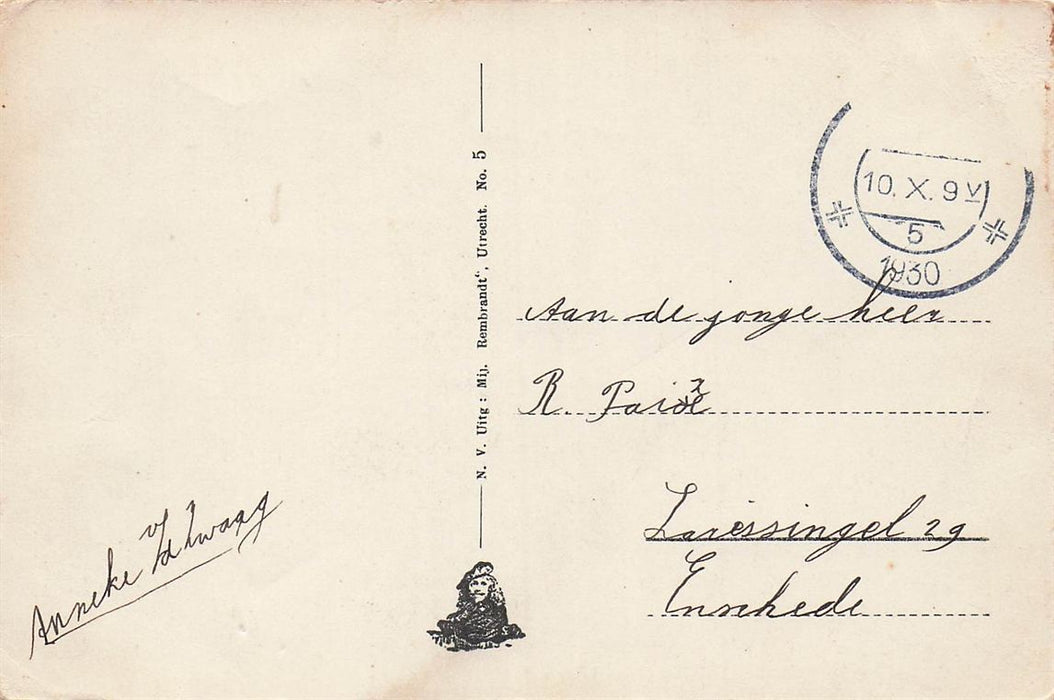 10. X. 9 V
5
1930
Aan de jonge heer
R.
Laressingel 29
Enschede
Anneke v/d Zwaag
N. V. Uitg : Mij. Rembrandt“, Utrecht. No. 5